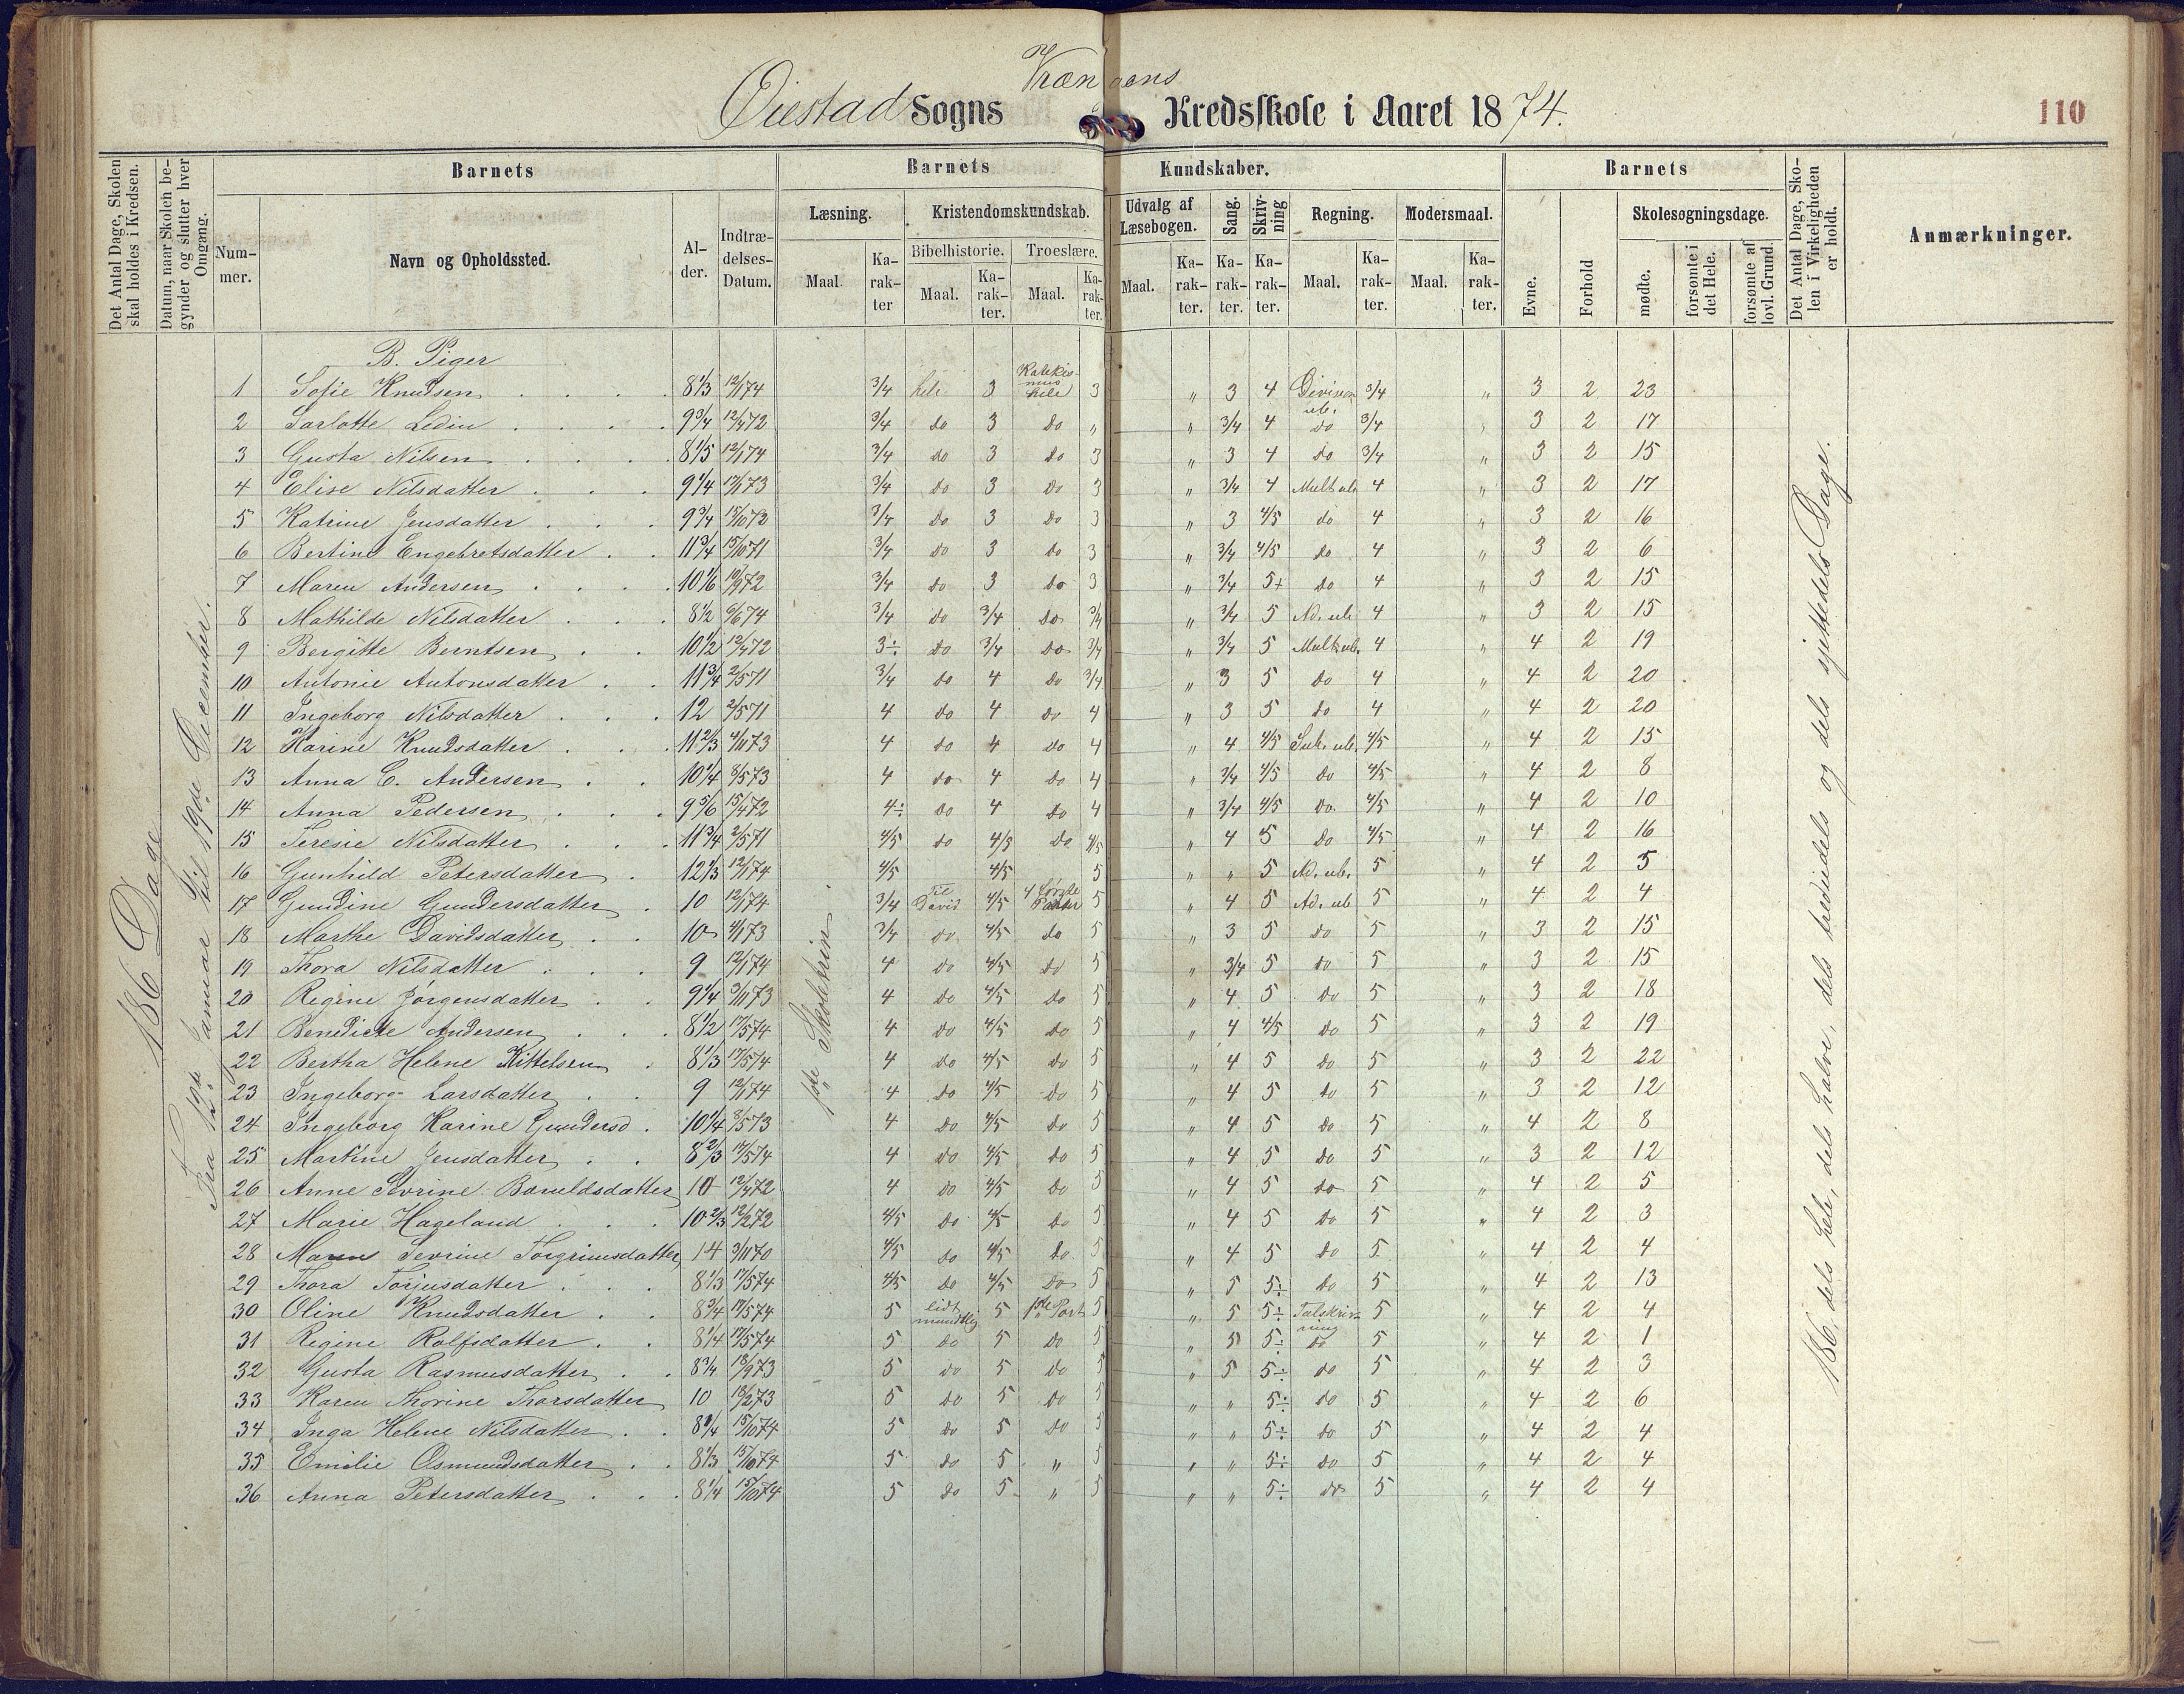 Øiestad Sogns Vrængens Kredsskole i Aaret 1874.
110
Det Antal Dage, Skolen skal holdes i Kredsen.
Datum, naar Skolen begynder og slutter hver Omgang.
Barnets
Nummer.
Navn og Opholdssted.
Alder.
Indtrædelses-Datum.
Barnets Kundskaber.
Læsning.
Maal.
Karakter
Kristendomskundskab.
Bibelhistorie.
Maal.
Karakter.
Troeslære.
Maal.
Karakter.
Udvalg af Læsebogen.
Maal.
Karakter.
Sang.
Karakter.
Skrivning
Karakter.
Regning.
Maal.
Karakter.
Modersmaal.
Maal.
Karakter.
Barnets
Evne.
Forhold
Skolesøgningsdage.
mødte.
forsømte i det Hele.
forsømte af lovl. Grund.
Det Antal Dage, Skolen i Virkeligheden er holdt.
Anmærkninger.
186 Dage
Fra 12te Januar til 19de December.
1ste Skoletrin.
186, dels hele, dels halve, dels trediedels og dels sjettedels Dage.
B. Piger
1 Sofie Knudsen 8 1/3 12/1 74 3/4 hele 3 Katekismus hele 3 " 3 4 Division ub. 3/4 " 3 2 23
2 Sarlotte Ledin 9 3/4 12/4 72 3/4 do 3 do " " 3/4 4 do 3/4 " 3 2 17
3 Gusta Nilsen 8 1/5 12/1 74 3/4 do 3 do 3 " 3 4 do 3/4 " 3 2 15
4 Elise Nilsdatter 9 1/4 17/1 73 3/4 do 3 do 3 " 3/4 4 Mult ub 4 " 3 2 17
5 Katrine Jensdatter 9 3/4 15/10 72 3/4 do 3 do 3 " 3 4/5 do 4 " 3 2 16
6 Bertine Engebretsdatter 11 3/4 15/10 71 3/4 do 3 do 3 " 3/4 4/5 do 4 " 3 2 6
7 Maren Andersen 10 1/6 19/9 72 3/4 do 3 do 3 " 3/4 5+ do 4 " 3 2 15
8 Mathilde Nilsdatter 8 1/2 6/6 74 3/4 do 3/4 do 3/4 " 3/4 5 Ad. ub 4 " 3 2 15
9 Bergitte Berntsen 10 1/2 12/4 72 3÷ do 3/4 do 3/4 " 3/4 5 Mult ub. 4 " 4 2 19
10 Antonie Antonsdatter 11 3/4 2/5 71 3/4 do 4 do 3/4 " 3 5 do 4 " 4 2 20
11 Ingeborg Nilsdatter 12 2/5 71 4 do 4 do 4 " 3 5 do 4 " 4 2 20
12 Karine Knudsdatter 11 2/3 4/11 73 4 do 4 do 4 " 4 4/5 Sub. ub. 4/5 " 4 2 15
13 Anna C. Andersen 10 1/4 8/5 73 4 do 4 do 4 " 3/4 4/5 do 4/5 " 4 2 8
14 Anna Pedersen 9 5/6 15/4 72 4÷ do 4 do 4 " 3/4 4/5 do 4/5 " 4 2 10
15 Teresie Nilsdatter 11 3/4 2/5 71 4/5 do 4/5 do 4/5 " 4 5 do 4/5 " 4 2 16
16 Gunhild Petersdatter 12 1/3 12/1 74 4/5 4/5 5 " " 5 Ad. ub. 5 " 4 2 5
17 Gundine Gundersdatter 10 12/1 74 3/4 Til David 4/5 4 første Parter 5 " 4 5 Ad. ub 5 " 4 2 4
18 Marthe Davidsdatter 10 4/1 73 3/4 do 4/5 do 5 " 3 5 do 5 " 3 2 15
19 Thora Nilsdatter 9 12/1 74 4 do 4/5 do 5 " 3/4 5 do 5 " 3 2 15
20 Regine Jørgensdatter 9 1/4 3/11 73 4 do 4/5 do 5 " 4 5 do 5 " 3 2 18
21 Benedicte Andersen 8 1/2 17/5 74 4 do 4/5 do 5 " 4 4/5 do 5 " 3 2 19
22 Bertha Helene Kittelsen 8 1/3 17/5 74 4 do 4/5 do 5 " 4 5 do 5 " 3 2 22
23 Ingeborg Larsdatter 9 12/1 74 4 do 4/5 do 5 " 4 5 do 5 " 3 2 12
24 Ingeborg Karine Gundersd. 10 1/4 8/5 73 4 do 4/5 do 5 " 4 5 do 5 " 4 2 8
25 Martine Jensdatter 8 2/3 17/5 74 4 do 4/5 do 5 " 4 5 do 5 " 3 2 12
26 Anne Sevrine Boruldsdatter 10 12/4 72 4 do 4/5 do 5 " 4 5 do 5 " 4 2 5
27 Marie Hageland 10 2/3 12/2 72 4/5 do 4/5 do 5 " 4 5 do 5 " 4 2 3
28 Maren Sevrine Torgrimsdatter 14 3/11 70 4/5 do 4/5 do 5 " 4 5 do 5 " 4 2 4
29 Thora Torjusdatter 8 1/3 17/5 74 4/5 do 4/5 do 5 " 5 5÷ do 5 " 4 2 13
30 Oline Knudsdatter 8 3/4 17/5 74 5 lidt mundtlig 5 1ste Part 5 " 5 5÷ Talskrivning 5 " 4 2 4
31 Regine Rolfsdatter 8 1/4 17/5 74 5 do 5 do 5 " 5 5÷ do 5 " 4 2 1
32 Gusta Rasmusdatter 8 3/4 18/9 73 5 do 5 do 5 " 5 5÷ do 5 " 4 2 3
33 Karen Thorine Thorsdatter 10 18/2 73 5 do 5 do 5 " " 5÷ do 5 " 4 2 6
34 Inga Helene Nilsdatter 8 1/4 15/10 74 5 do 5 do 5 " " 5÷ do 5 " 4 2 4
35 Emilie Osmundsdatter 8 1/3 15/10 74 5 do 5 " 5 " " 5÷ do 5 " 4 2 4
36 Anna Petersdatter 8 1/4 15/10 74 5 do 5 " 5 " " 5÷ do 5 " 4 2 4